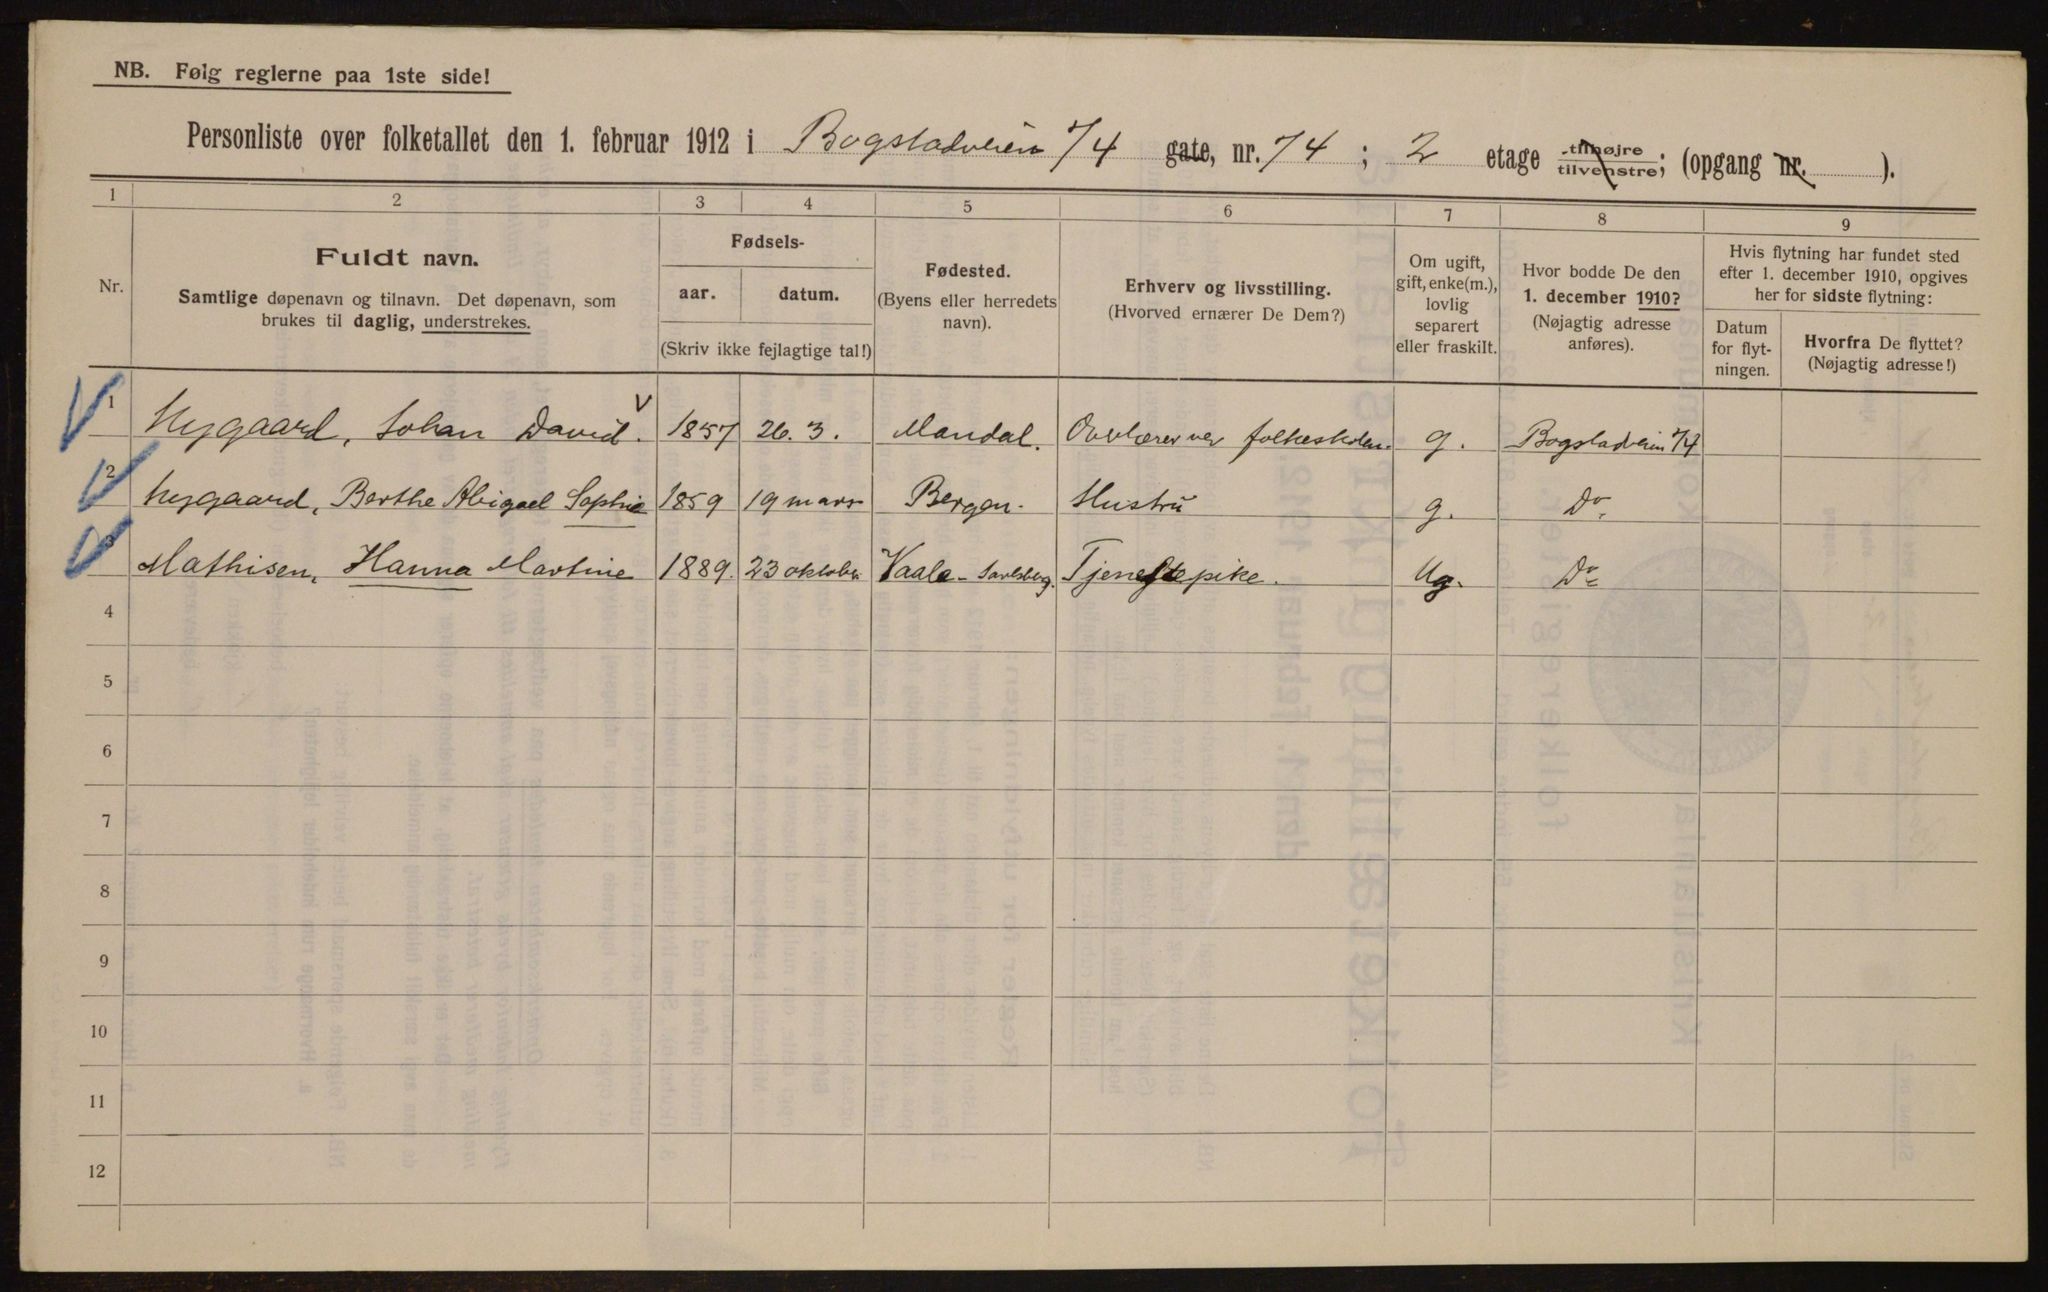 NB. Følg reglerne paa 1ste side!
Personliste over folketallet den 1. februar 1912 i Bogstadveien 74 gate, nr. 74; 2 etage tilhøjre tilvenstre; (opgang nr. ).
1 2 3 4 5 6 7 8 9
Nr.
Fuldt navn.
Samtlige døpenavn og tilnavn. Det døpenavn, som
brukes til daglig, understrekes.
Fødsels-
aar. datum.
(Skriv ikke fejlagtige tal!)
Fødested.
(Byens eller herredets
navn).
Erhverv og livsstilling.
(Hvorved ernærer De Dem?)
Om ugift,
gift, enke(m.),
lovlig
separert
eller fraskilt.
Hvor bodde De den
1. december 1910?
(Nøjagtig adresse
anføres).
Hvis flytning har fundet sted
efter 1. december 1910, opgives
her for sidste flytning:
Datum
for flyt-
ningen.
Hvorfra De flyttet?
(Nøjagtig adresse!)
1 Nygaard, Johan David. 1857 26. 3. Mandal. Overlærer ver folkeskolen. g. Bogstadveien 74
2 Nygaard, Berthe Abigael Sophie 1859 19 mars Bergen. Hustru g. Do.
3 Mathisen, Hanna Martine 1889. 23 oktober Vaale - Jarlsberg. Tjenestepike. Ug. Do
4
5
6
7
8
9
10
11
12